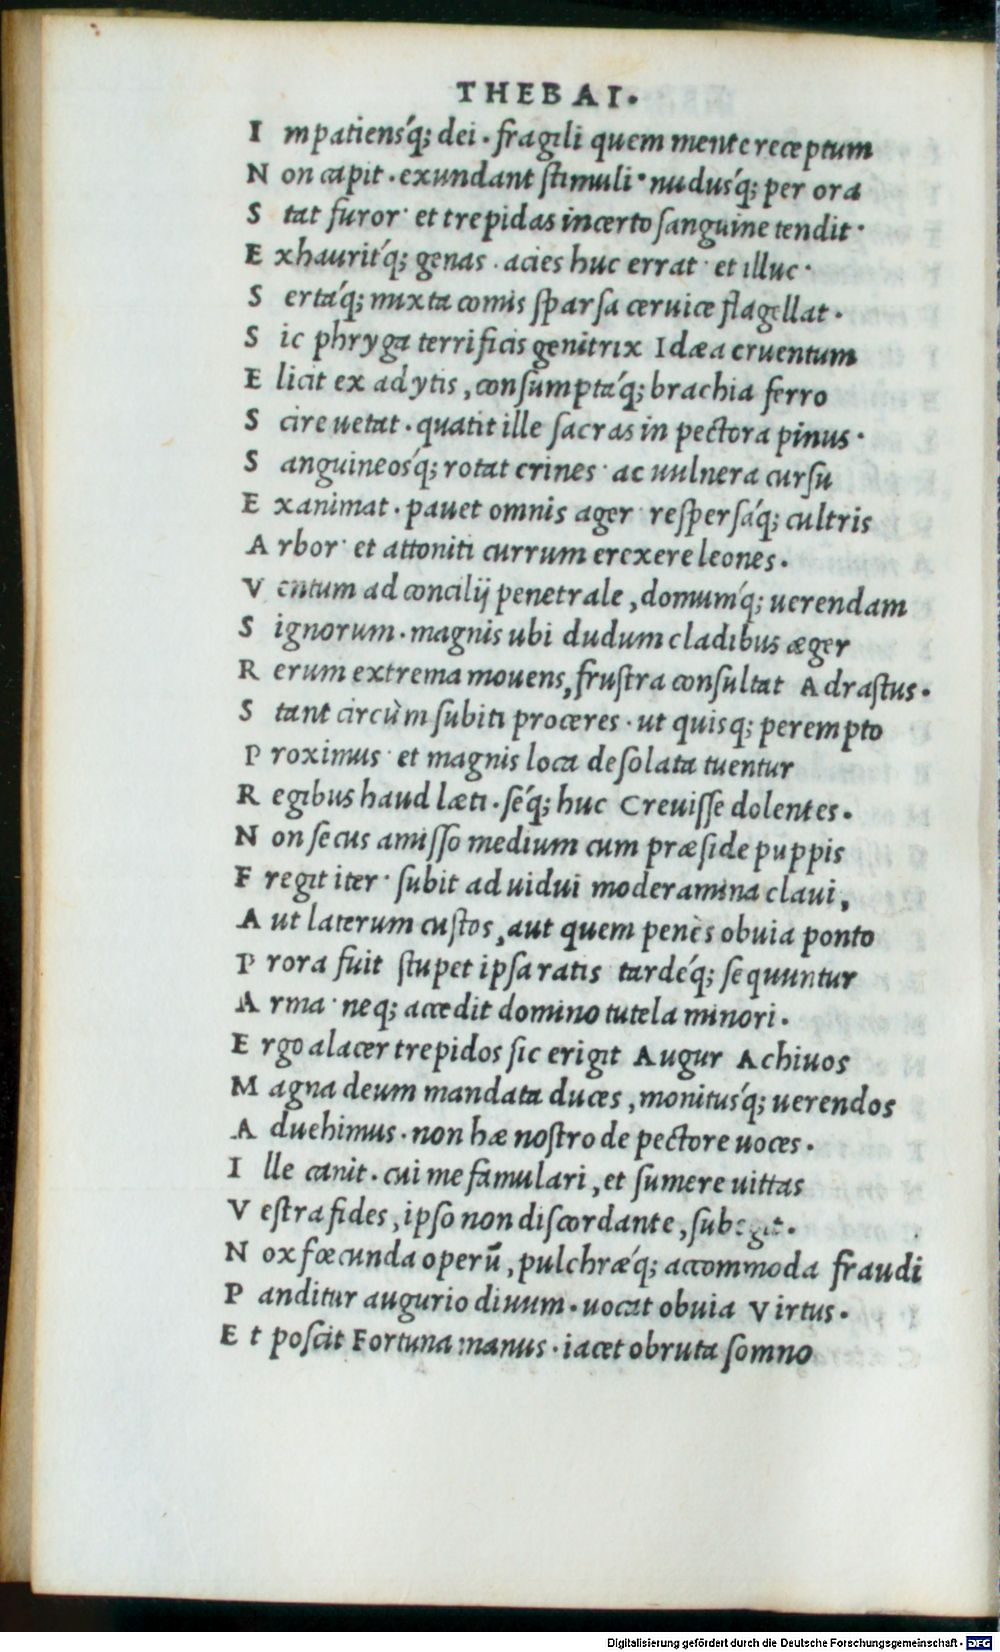 THEBAI.
I mpatiens´q; dei . fragili quem mente receptum
N on capit . exundant stimuli · nudus´q; per ora
S tat furor · et trepidas incerto sanguine tendit ·
E xhaurit´q; genas . acies huc errat · et illuc ·
S erta´q; mixta comis sparsa ceruice flagellat .
S ic phryga terrificis genitrix Idæa cruentum
E licit ex adytis, consumpta´q; brachia ferro
S cire uetat . quatit ille sacras in pectora pinus ·
S anguineos´q; rotat crines · ac uulnera cursu
E xanimat . pauet omnis ager · respersa´q; cultris
A rbor · et attoniti currum erexere leones .
V entum ad concilij penetrale, domum´q; uerendam
S ignorum . magnis ubi dudum cladibus æger
R erum extrema mouens, frustra consultat Adrastus .
S tant circùm subiti proceres . ut quisq; perempto
P roximus · et magnis loca desolata tuentur
R egibus haud læti . sé´q; huc Creuisse dolentes .
N on secus amisso medium cum præside puppis
F regit iter · subit ad uidui moderamina claui,
A ut laterum custos, aut quem penès obuia ponto
P rora fuit stupet ipsa ratis tardé´q; sequuntur
A rma · neq; accedit domino tutela minori .
E rgo alacer trepidos sic erigit Augur Achiuos
M agna deum mandata duces, monitus´q; uerendos
A duehimus . non hæ nostro de pectore uoces .
I lle canit . cui me famulari, et sumere uittas
V estra fides, ipso non discordante, subegit .
N ox fœcunda operū, pulchræ´q; accommoda fraudi
P anditur augurio diuum . uocat obuia Virtus .
E t poscit Fortuna manus . iacet obruta somno
Digitalisierung gefördert durch die Deutsche Forschungsgemeinschaft - DFG